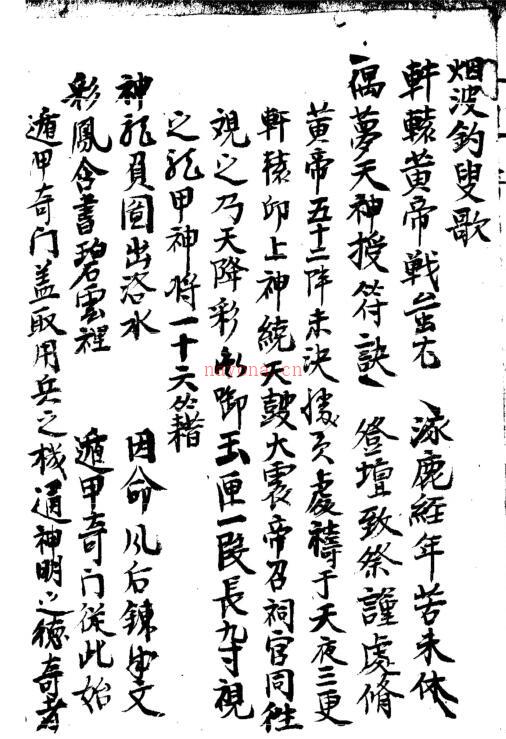 烟波釣叟歌
軒轅黄帝戦蚩尤 涿鹿経年苦未休
偶夢天神授符訣 登壇致祭謹處脩
黄帝五十二陣未決勝負虔禱于天夜三更
軒轅卯上神繞天鼓大震帝召祠官同往
視之乃天降彩 御玉匣一段長九寸視
之龍甲神將一十六 籍
神龍負圖出洛水 因命风后錬成文
彩鳳含書碧雲裡 遁甲奇门從此始
遁甲奇门盖取用兵之機通神明之德奇者